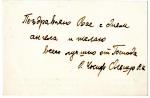 Поздравляю Вас с днем
ангела и желаю
всего лучшего от Господа